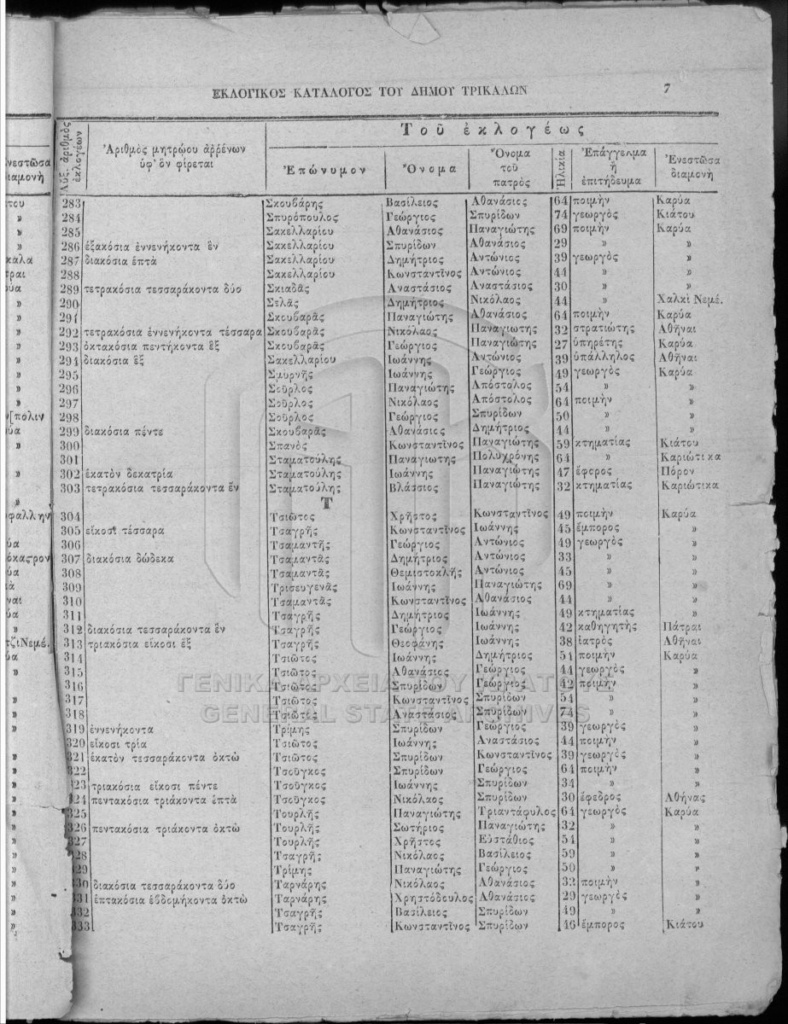 ΕΚΛΟΓΙΚΟΣ ΚΑΤΑΛΟΓΟΣ ΤΟΥ ΔΗΜΟΥ ΤΡΙΚΑΛΩΝ 7
Τοῦ ἐκλογέως
Αὔξ. ἀριθμὸς ἐκλογέων Ἀριθμὸς μητρῴου ἀρρένων ὑφ' ὃν φέρεται Ἐπώνυμον Ὄνομα Ὄνομα τοῦ πατρὸς Ἡλικία Ἐπάγγελμα ἢ ἐπιτήδευμα Ἐνεστῶσα διαμονὴ
283 Σκουβάρης Βασίλειος Ἀθανάσιος 64 ποιμὴν Καρύα
284 Σπυρόπουλος Γεώργιος Σπυρίδων 74 γεωργὸς Κιάτου
285 Σακελλαρίου Ἀθανάσιος Παναγιώτης 69 ποιμὴν Καρύα
286 ἑξακόσια ἐννενήκοντα ἓν Σακελλαρίου Σπυρίδων Ἀθανάσιος 29 » »
287 διακόσια ἑπτὰ Σακελλαρίου Δημήτριος Ἀντώνιος 39 γεωργὸς »
288 Σακελλαρίου Κωνσταντῖνος Ἀντώνιος 44 » »
289 τετρακόσια τεσσαράκοντα δύο Σκιαδᾶς Ἀναστάσιος Ἀναστάσιος 30 » »
290 Σελᾶς Δημήτριος Νικόλαος 44 » Χαλκὶ Νεμέ.
291 Σκουβαρᾶς Παναγιώτης Ἀθανάσιος 64 ποιμὴν Καρύα
292 τετρακόσια ἐννενήκοντα τέσσαρα Σκουβαρᾶς Νικόλαος Παναγιώτης 32 στρατιώτης Ἀθῆναι
293 ὀκτακόσια πεντήκοντα ἓξ Σκουβαρᾶς Γεώργιος Παναγιώτης 27 ὑπηρέτης Καρύα
294 διακόσια ἓξ Σακελλαρίου Ἰωάννης Ἀντώνιος 39 ὑπάλληλος Ἀθῆναι
295 Σμυρνῆς Ἰωάννης Γεώργιος 49 γεωργὸς Καρύα
296 Σοῦρλος Παναγιώτης Ἀπόστολος 54 » »
297 Σοῦρλος Νικόλαος Ἀπόστολος 64 ποιμὴν »
298 Σοῦρλος Γεώργιος Σπυρίδων 50 » »
299 διακόσια πέντε Σκουβαρᾶς Ἀθανάσιος Δημήτριος 44 » »
300 Σπανὸς Κωνσταντῖνος Παναγιώτης 59 κτηματίας Κιάτου
301 Σταματούλης Παναγιώτης Πολυχρόνης 64 » Καριώτικα
302 ἑκατὸν δεκατρία Σταματούλης Ἰωάννης Παναγιώτης 47 ἔφορος Πόρον
303 τετρακόσια τεσσαράκοντα ἓν Σταματούλης Βλάσσιος Παναγιώτης 32 κτηματίας Καριώτικα
Τ
304 Τσιῶτος Χρῆστος Κωνσταντῖνος 49 ποιμὴν Καρύα
305 εἴκοσι τέσσαρα Τσαγρῆς Κωνσταντῖνος Ἰωάννης 45 ἔμπορος »
306 Τσαμαντῆς Γεώργιος Ἀντώνιος 49 γεωργὸς »
307 διακόσια δώδεκα Τσαμαντᾶς Δημήτριος Ἀντώνιος 33 » »
308 Τσαμαντᾶς Θεμιστοκλῆς Ἀντώνιος 45 » »
309 Τρισευγενᾶς Ἰωάννης Παναγιώτης 69 » »
310 Τσαμαντᾶς Κωνσταντῖνος Ἀθανάσιος 44 » »
311 Τσαγρῆς Δημήτριος Ἰωάννης 49 κτηματίας »
312 διακόσια τεσσαράκοντα ἓν Τσαγρῆς Γεώργιος Ἰωάννης 42 καθηγητὴς Πάτραι
313 τριακόσια εἴκοσι ἓξ Τσαγρῆς Θεοφάνης Ἰωάννης 38 ἰατρὸς Ἀθῆναι
314 Τσιῶτος Ἰωάννης Δημήτριος 51 ποιμὴν Καρύα
315 Τσιῶτος Ἀθανάσιος Γεώργιος 44 γεωργὸς »
316 Τσιῶτος Σπυρίδων Γεώργιος 42 ποιμὴν »
317 Τσιῶτος Κωνσταντῖνος Σπυρίδων 54 » »
318 Τσιῶτος Ἀναστάσιος Σπυρίδων 74 » »
319 ἐννενήκοντα Τρίμης Σπυρίδων Γεώργιος 39 γεωργὸς »
320 εἴκοσι τρία Τσιῶτος Ἰωάννης Ἀναστάσιος 44 ποιμὴν »
321 ἑκατὸν τεσσαράκοντα ὀκτὼ Τσιῶτος Σπυρίδων Κωνσταντῖνος 39 γεωργὸς »
322 Τσοῦγκος Σπυρίδων Γεώργιος 64 ποιμὴν »
323 τριακόσια εἴκοσι πέντε Τσοῦγκος Ἰωάννης Σπυρίδων 34 » »
324 πεντακόσια τριάκοντα ἑπτὰ Τσοῦγκος Νικόλαος Σπυρίδων 30 ἔφεδρος Ἀθήνας
325 Τουρλῆς Παναγιώτης Τριαντάφυλος 64 γεωργὸς Καρύα
326 πεντακόσια τριάκοντα ὀκτὼ Τουρλῆς Σωτήριος Παναγιώτης 32 » »
327 Τουρλῆς Χρῆστος Εὐστάθιος 54 » »
328 Τσαγρῆς Νικόλαος Βασίλειος 59 » »
329 Τρίμης Παναγιώτης Γεώργιος 50 » »
330 διακόσια τεσσαράκοντα δύο Ταρνάρης Νικόλαος Ἀθανάσιος 32 ποιμὴν »
331 ἑπτακόσια ἑβδομήκοντα ὀκτὼ Ταρνάρης Χρηστόδουλος Ἀθανάσιος 29 γεωργὸς »
332 Τσαγρῆς Βασίλειος Σπυρίδων 49 » »
333 Τσαγρῆς Κωνσταντῖνος Σπυρίδων 46 ἔμπορος Κιάτου
ΓΕΝΙΚΑ ΑΡΧΕΙΑ ΤΟΥ ΚΡΑΤΟΥΣ
GENERAL STATE ARCHIVES